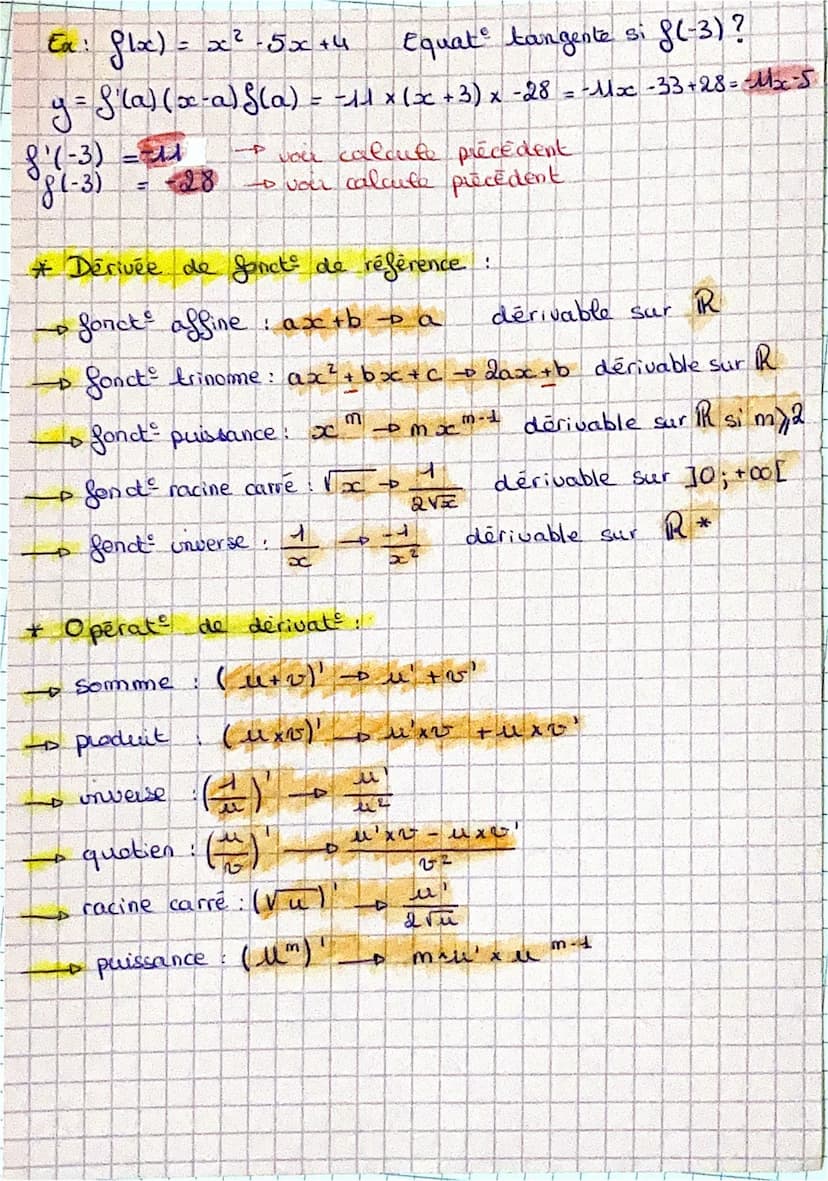 Ex : f(x) = x² - 5x + 4 Equat° tangente si f(-3) ?
y = f'(a)(x-a)f(a) = -11 × (x + 3) × -28 = -11x - 33 + 28 = -11x - 5
f'(-3) = -11 → voir calcule précédent
f(-3) = -28 → voir calcule précédent
* Dérivée de fonct° de référence :
→ fonct° affine : ax + b → a dérivable sur ℝ
→ fonct° trinome : ax² + bx + c → 2ax + b dérivable sur ℝ
→ fonct° puissance : x^m → m x^(m-1) dérivable sur ℝ si m ⩾ 2
→ fonct° racine carré : √x → 1/(2√x) dérivable sur ]0 ; +∞[
→ fonct° inverse : 1/x → -1/x² dérivable sur ℝ*
* Opérat° de dérivat° :
→ somme : (u + v)' → u' + v'
→ produit : (u × v)' → u' × v + u × v'
→ inverse : (1/u)' → u'/u²
→ quotien : (u/v)' → (u' × v - u × v')/v²
→ racine carré : (√u)' → u'/(2√u)
→ puissance : (u^m)' → m × u' × u^(m-1)